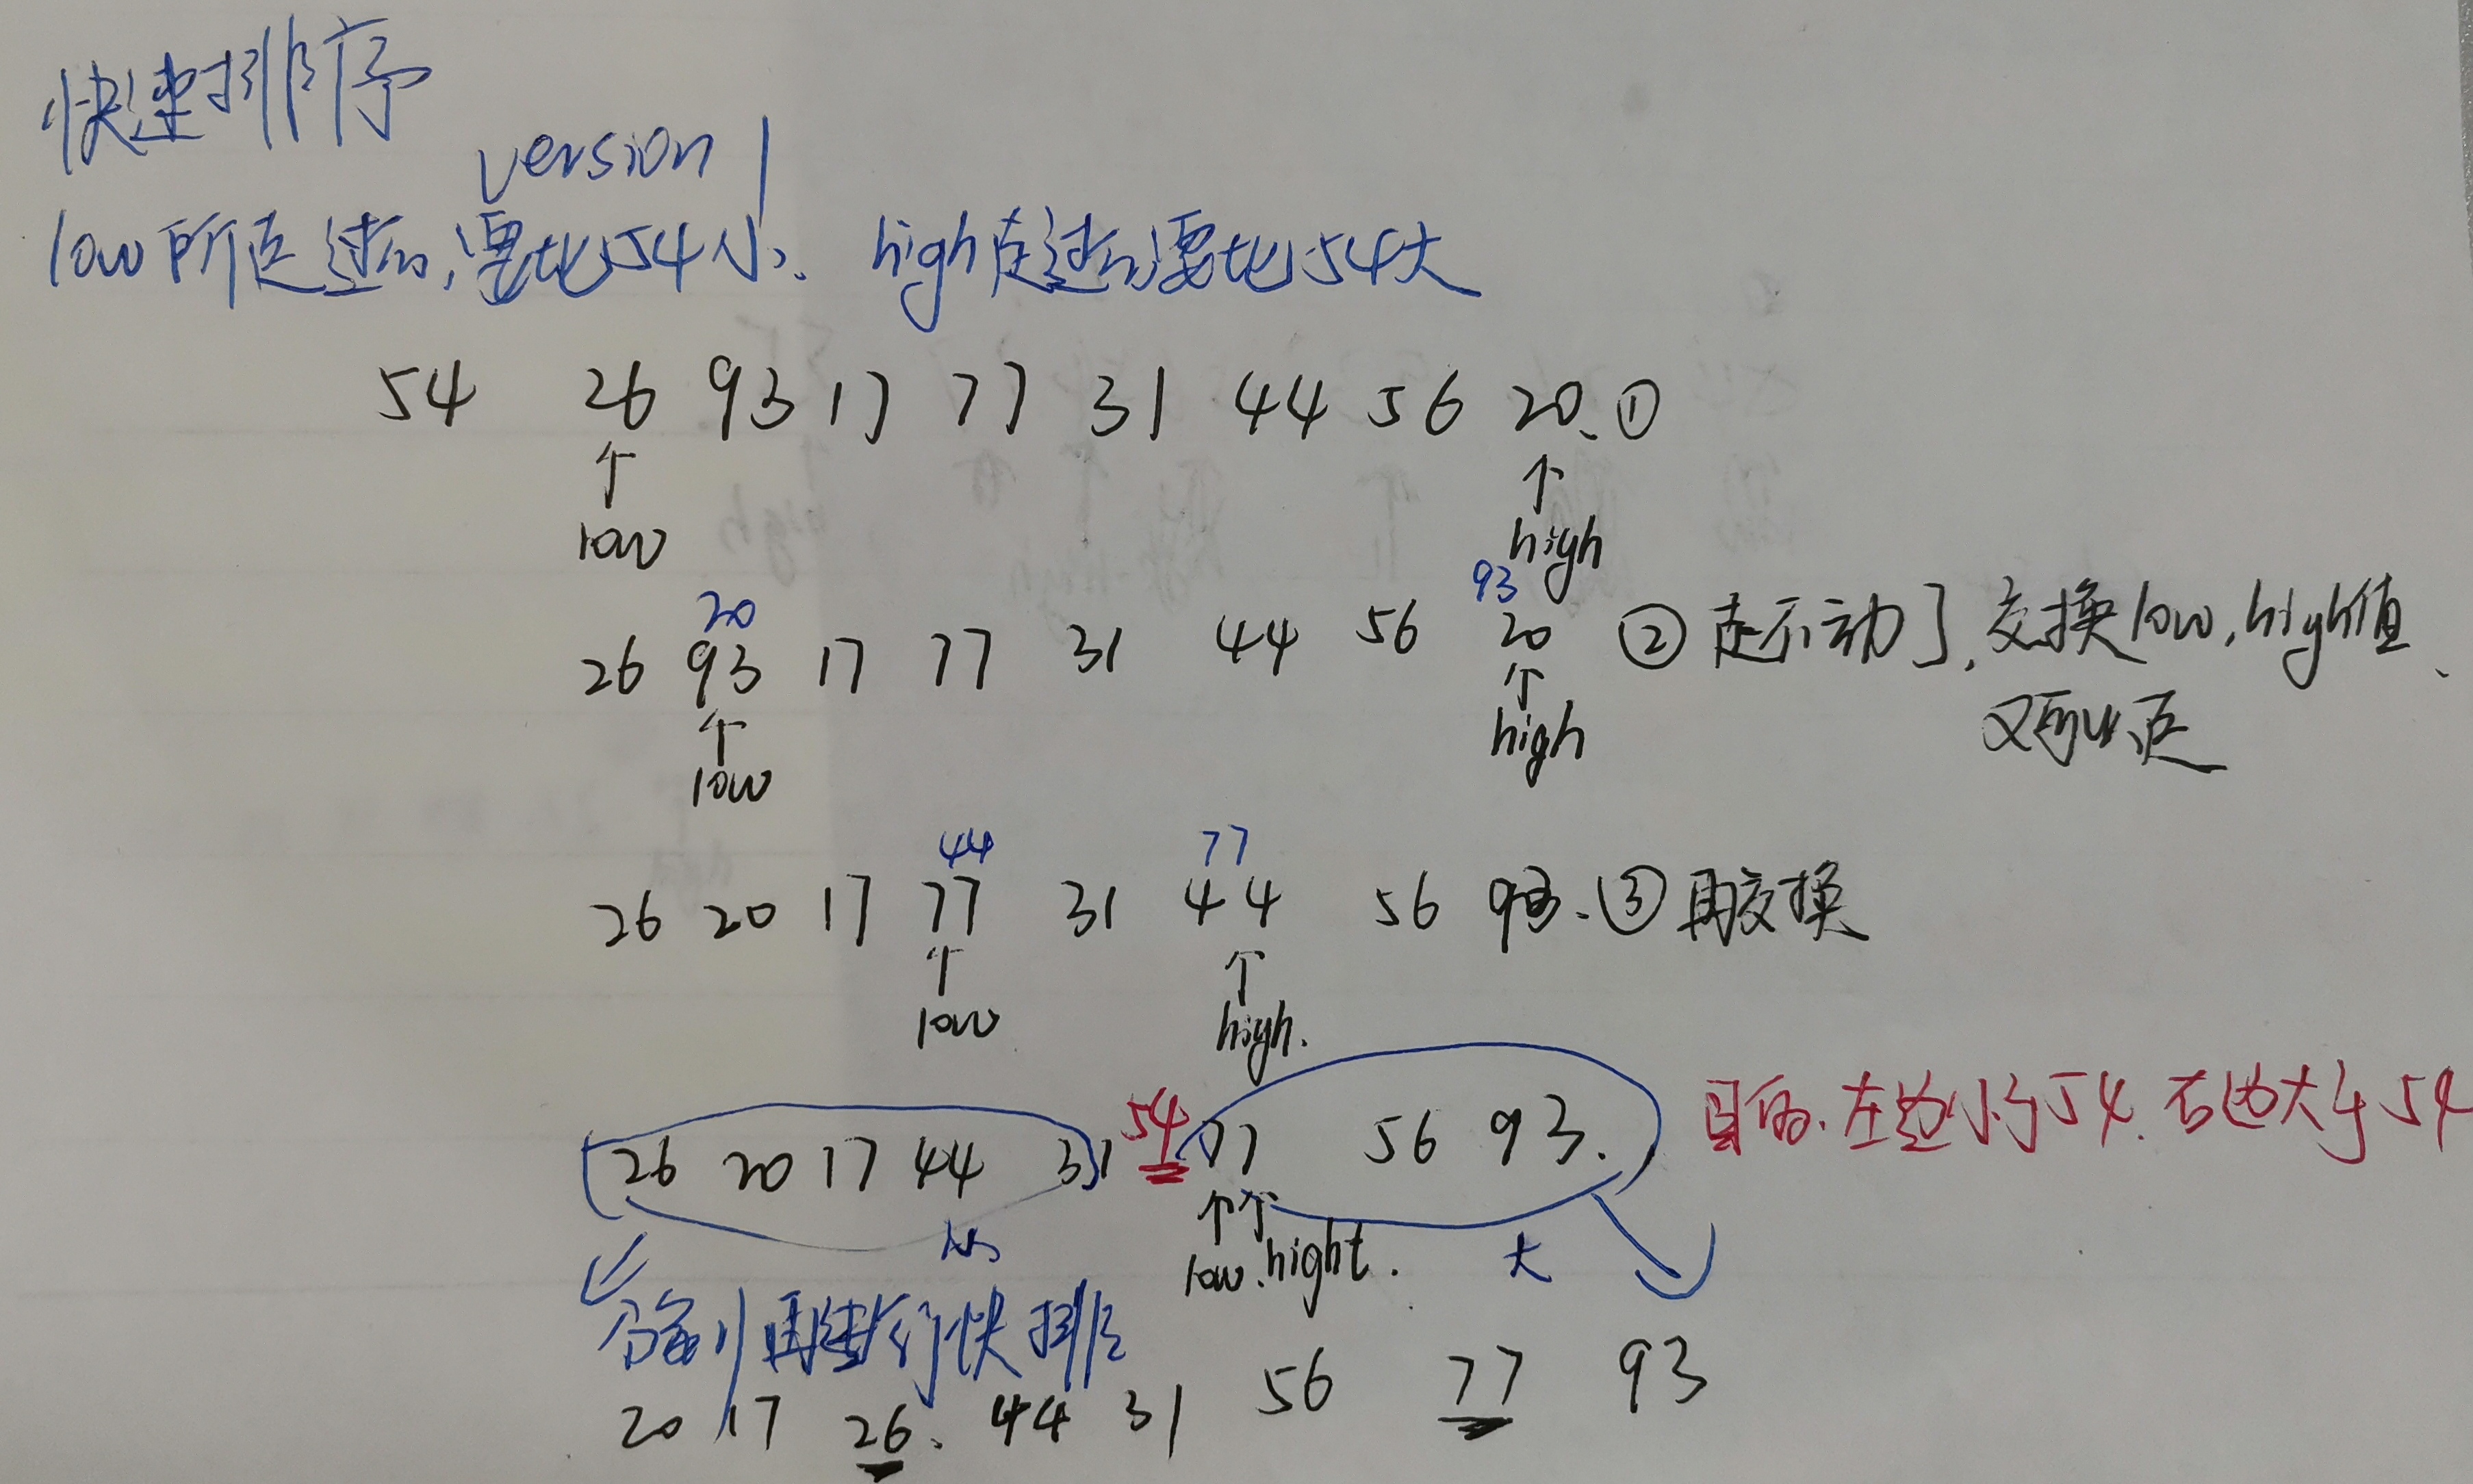 快速排序
version 1
low所走过的,要比54小、 high走过的要比54大
54 26 93 17 77 31 44 56 20、①
low high
20 93
26 93 17 77 31 44 56 20 ②走不动了,交换low,high值、
low high 又可以走
44 77
26 20 17 77 31 44 56 93、③再交换
low high.
26 20 17 44 31 54 77 56 93. 目的.左边小于54.右边大于54
low.hight. 大
分每别再进行快排
20 17 26、44 31 56 77 93